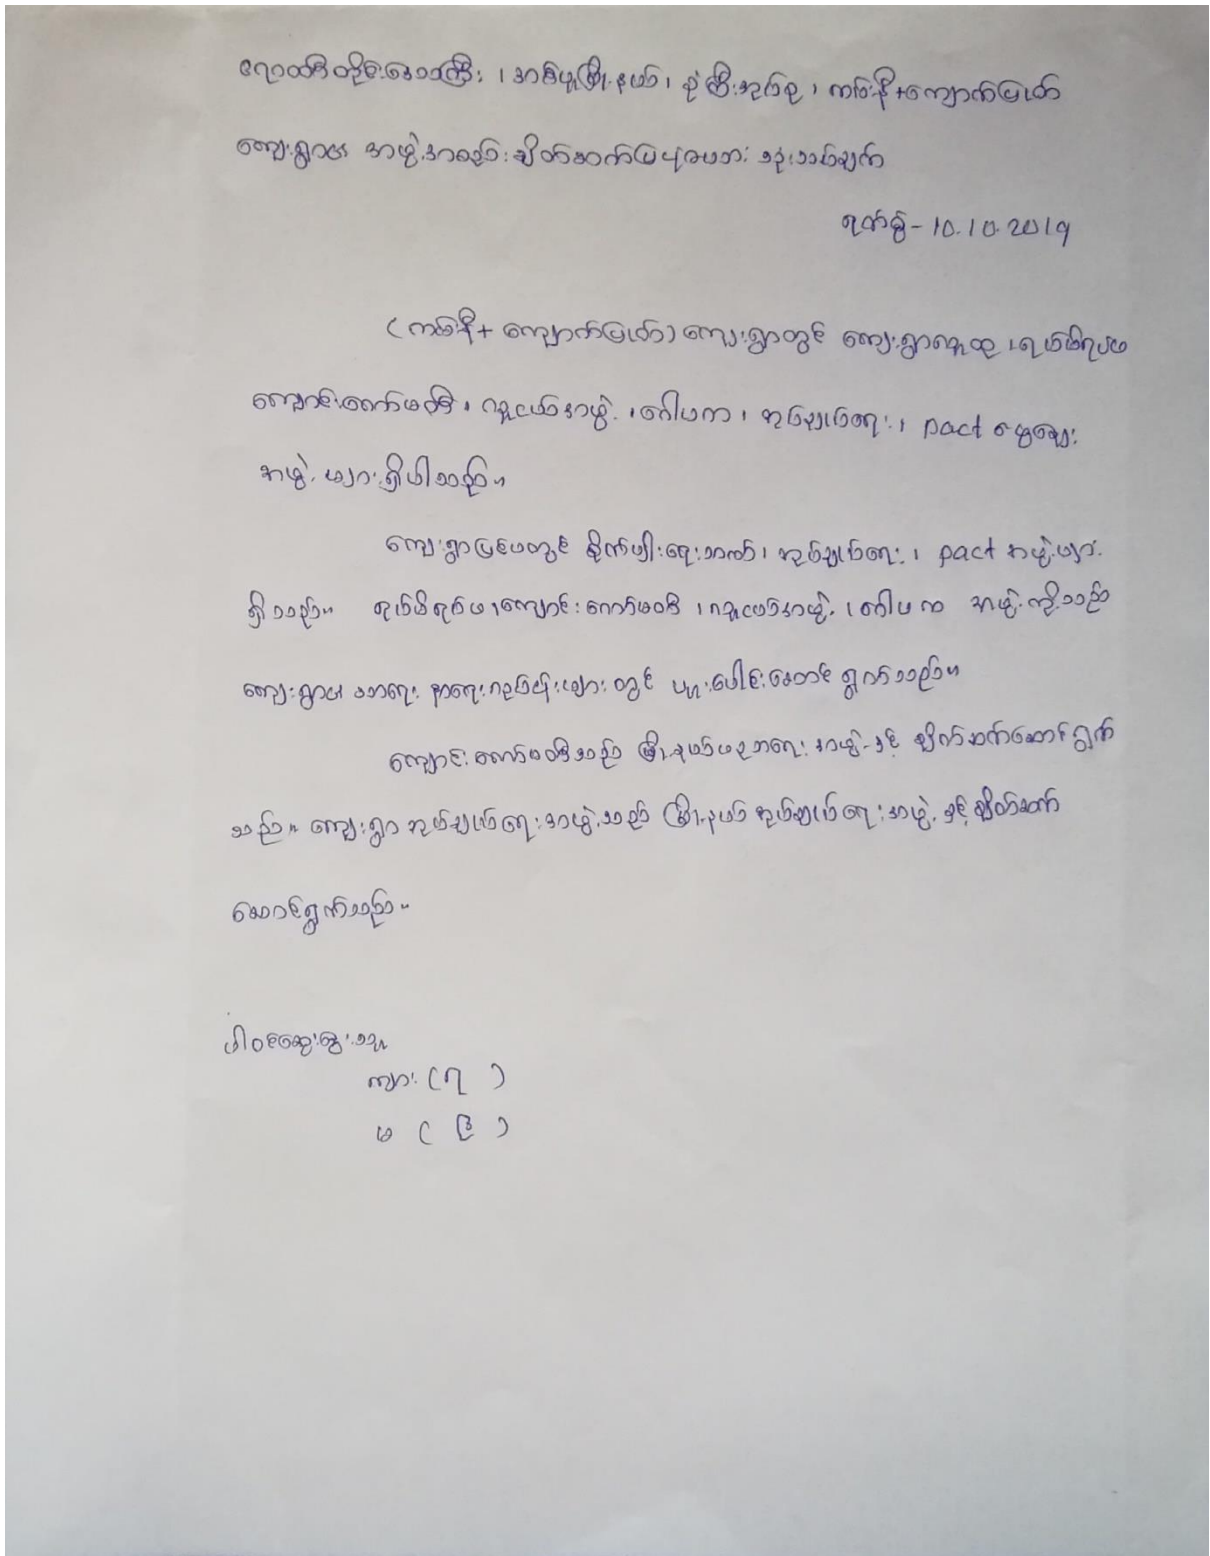 ဧရာဝတီတိုင်းဒေသကြီး ၊ အင်္ဂပူမြို့နယ်၊ စုံကြီးအုပ်စု ၊ ကင်းနီ+ကျောက်မြှပ်
ကျေးရွာ၏ အဖွဲ့အစည်းချိတ်ဆက်ပြပုံကားချပ် သုံးသပ်ချက်
ရက်စွဲ - 10.10.2019
(ကင်းနီ+ ကျောက်မြှပ်) ကျေးရွာတွင် ကျေးရွာလူထု ၊ ရပ်မိရပ်ဖ
ကျောင်းကော်မတီ ၊ လူငယ်အဖွဲ့ ၊ ဂေါပက ၊ အုပ်ချုပ်ရေး ၊ pact ငွေချေး
အဖွဲ့ များရှိပါသည်။
ကျေးရွာပြင်ပတွင် စိုက်ပျိုးရေးဘဏ်၊ အုပ်ချုပ်ရေး ၊ pact အဖွဲ့များ
ရှိသည်။ ရပ်မိရပ်ဖ၊ ကျောင်းကော်မတီ ၊ လူငယ်အဖွဲ့ ၊ ဂေါပက အဖွဲ့တို့သည်
ကျေးရွာ၏ သာရေး နာရေးလုပ်ငန်းများတွင် ပူးပေါင်းဆောင်ရွက်သည်။
ကျောင်းကော်မတီသည် မြို့နယ်ပညာရေးအဖွဲ့နှင့် ချိတ်ဆက်ဆောင်ရွက်
သည်။ ကျေးရွာအုပ်ချုပ်ရေးအဖွဲ့သည် မြို့နယ်အုပ်ချုပ်ရေးအဖွဲ့နှင့်ချိတ်ဆက်
ဆောင်ရွက်သည်။
ပါဝင်ဆွေးနွေးသူ
ကျား (၇ )
မ ( ၉ )